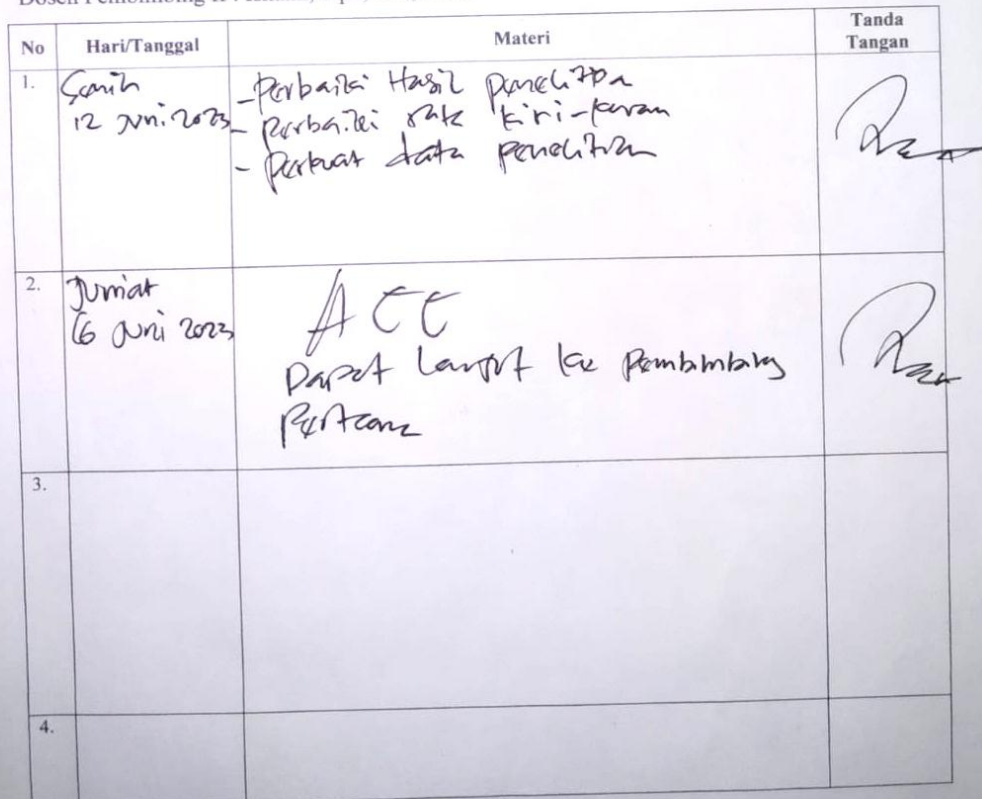 Dosen Pembimbing II
No Hari/Tanggal Materi Tanda Tangan
1. Senin
12 Juni 2023
- Perbaiki Hasil Penelitian
- Perbaiki rata kiri-kanan
- Perkuat data penelitian
2. Jum'at
16 Juni 2023
ACC
Dapat lanjut ke Pembimbing
Pertama
3.
4.